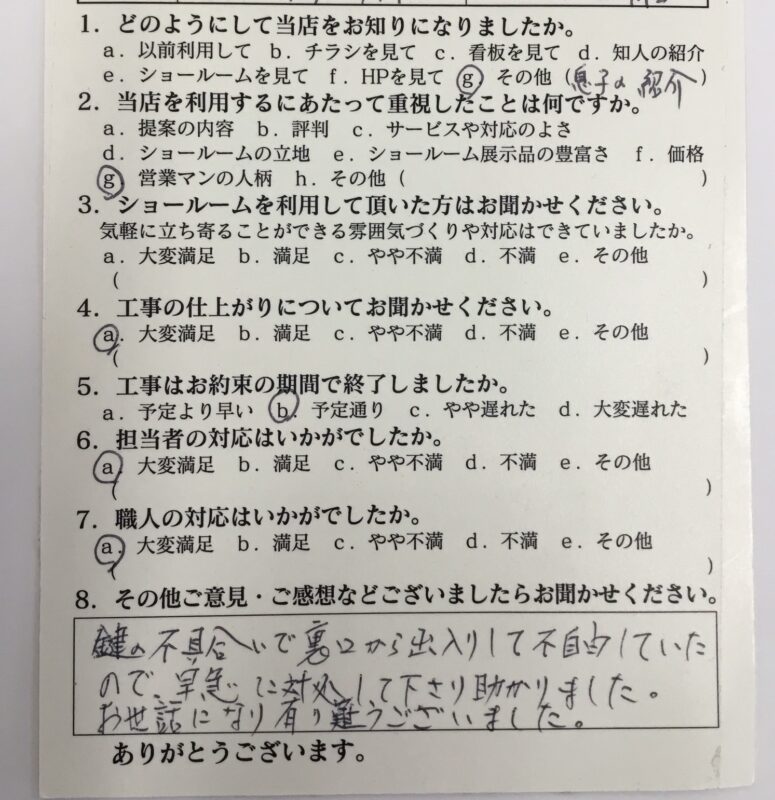 1．どのようにして当店をお知りになりましたか。
a．以前利用して b．チラシを見て c．看板を見て d．知人の紹介
e．ショールームを見て f．HPを見て g その他（息子の紹介）
2．当店を利用するにあたって重視したことは何ですか。
a．提案の内容 b．評判 c．サービスや対応のよさ
d．ショールームの立地 e．ショールーム展示品の豊富さ f．価格
g 営業マンの人柄 h．その他（ ）
3．ショールームを利用して頂いた方はお聞かせください。
気軽に立ち寄ることができる雰囲気づくりや対応はできていましたか。
a．大変満足 b．満足 c．やや不満 d．不満 e．その他
（ ）
4．工事の仕上がりについてお聞かせください。
a．大変満足 b．満足 c．やや不満 d．不満 e．その他
（ ）
5．工事はお約束の期間で終了しましたか。
a．予定より早い b．予定通り c．やや遅れた d．大変遅れた
6．担当者の対応はいかがでしたか。
a．大変満足 b．満足 c．やや不満 d．不満 e．その他
（ ）
7．職人の対応はいかがでしたか。
a．大変満足 b．満足 c．やや不満 d．不満 e．その他
（ ）
8．その他ご意見・ご感想などございましたらお聞かせください。
鍵の不具合いで裏口から出入りして不自由していた
ので、早急に対処して下さり助かりました。
お世話になり有り難うございました。
ありがとうございます。